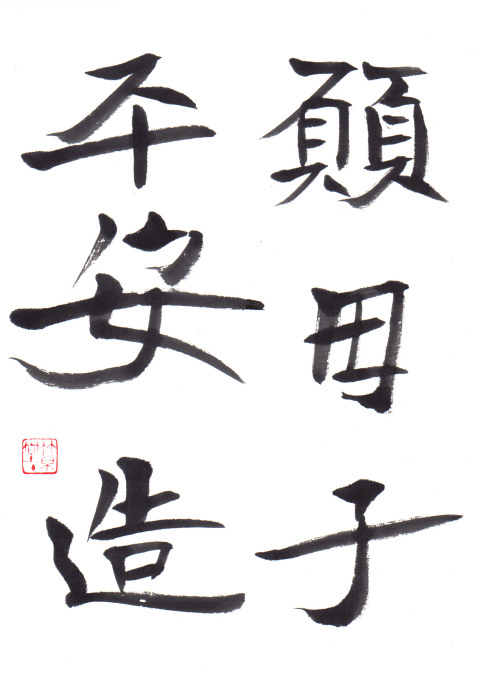 願母子
平安造